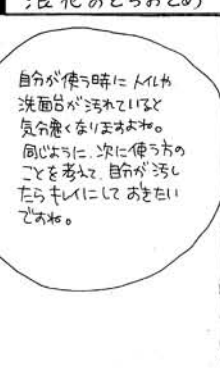 自分が使う時にトイレや
洗面台が汚れていると
気分悪くなりますよね。
同じように、次に使う方の
ことを考えて、自分が汚し
たらキレイにしておきたい
ですね。